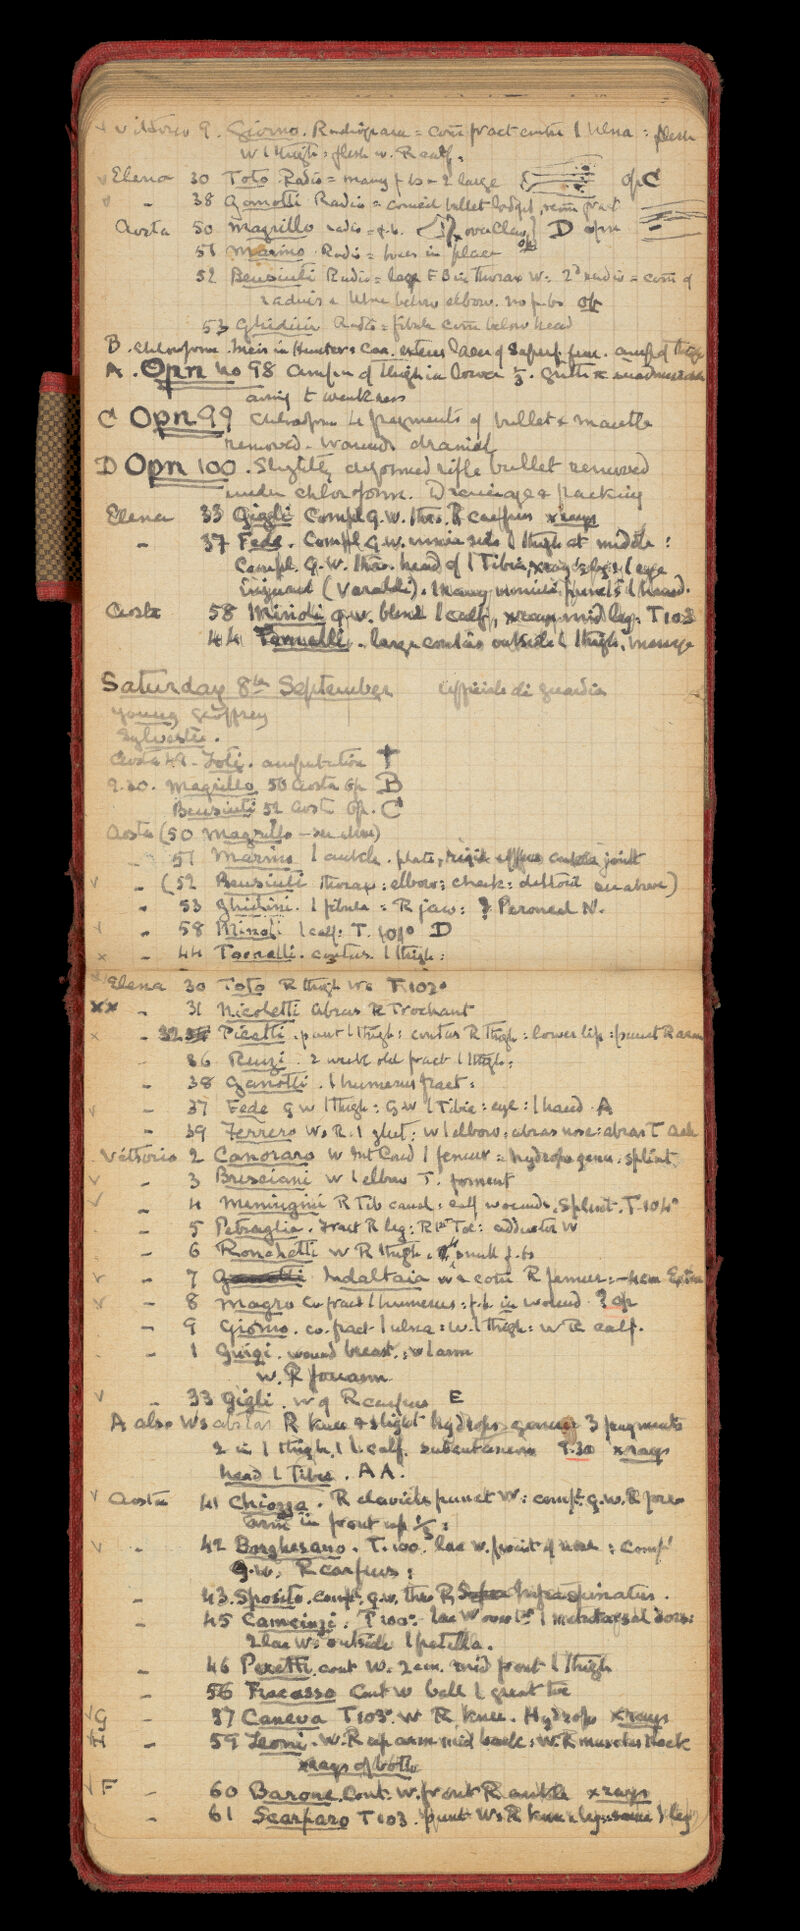 Vittorio 9. Giorno. Radiogram = com fract centre l Ulna : flesh
w l thigh : flesh w. R calf.
Elena 30 Toto Radio = many f bs - 2 large op C
- 38 Ganotti Radio = coned bullet lodged,
Aosta 50 Magrillo radio = f.b. D opn
51 Marino Radio = in place
52 Bensiuti Radio = large F B in thorax W. 2d radio = com of
radius & Ulna below elbow. no f.bs op
53 Ghidini Radio = fibula com below head
B. Chloroform. Incis in Hunter's Can. of Superf fem. amp of thigh
A. Opn No 98 Ampn of thigh in lower 1/3.
owing to weakness
C Opn 99 Chloroform 4 fragments of bullet & mantle
removed. Wounds drained
D Opn 100. Slightly deformed rifle bullet removed
under chloroform. Drainage & packing
Elena 33 Gigli Compl G.W. thro. R carpus xrays
- 37 Fede. Compl G.W. side l thigh at middle :
Compl. G.W. thro. head of l Tibia, xrays l eye
injured (Varaldi). Many l hand.
Aosta 58 Minoli g.w. blind l calf, xrays mid leg. T 103
44 Tornelli. large contus outside l thigh,
Saturday 8th September Ufficiale di guardia
Young Geoffrey
Sylvester.
Aosta 49 - Toti. amputation †
9.30. Magrillo 50 Aosta Op B
Bensiuti 52 Aost Op. C
Aosta (50 Magrillo - see above)
- 51 Marino l ankle. plate, ankle joint
- (52 Bensiuti thorax : elbow : cheek : deltoid see above)
- 53 Ghidini. l fibula = R jaw : ? Peroneal N.
- 58 Minoli l calf : T. 101° D
- 44 Tornelli. contus. l thigh :
Elena 30 Toto R thigh Ws T. 102°
xx - 31 Nicoletti Abras R Trochant
- 32 Picetti. punt l thigh : contus R thigh : lower lip : punct R arm
- 36 Renzi. 2 week old fract l thigh :
- 38 Ganotti. l humerus fract :
- 37 Fede g w l thigh : g w l Tibia : eye : l hand. A
- 39 Ferrero Ws R. l glut : w l elbow : abras nose : abras T
Vittorio 2 Canoraro W Int Cond l femur = hydrops genu : splint
- 3 Bresciani w l elbow T. forment
- 4 Meningini R Tib canal : calf wounds. Splint. T. 104°
- 5 Petraglia. Fract R leg : R 1st Toe : adductor W
- 6 Ronchetti w R thigh. small f.bs
- 7 Indaltaia w com R femur : - 4cm Exten
- 8 Magro Co fract l humerus : f.b. in wound ? op
- 9 Giorno. co. fract l ulna : w. l thigh : w R calf.
- 1 Guigi. wound breast : w l arm
w. R forearm
- 33 Gigli. w of R carpus E
A also Ws R knee & slight hydrops genu 3 fragments
2 in l thigh, 1 l. calf. subcutaneous 9.30 xrays
head l Tibia. AA.
Aosta 41 Chiozza. R clavicle punct W : comp. g.w. R fore
arm in front up 1/3 :
- 42 Borghesano. T. 100. lac w. front of nose : Compl
G.w. R carpus :
- 43. Sposito. compl. g.w. thro R Infraspinatus.
- 45 Cameinzi. T 100° lac W over 1st l metatarsal dors :
2 lac Ws outside l patella.
- 46 Peretti. cont W. 2 cm. mid front l thigh
- 56 Fracasso Cont W ball l great toe
G - 57 Caneva T 103° W R knee. Hydrops xrays
H - 59 Leoni. W. R up arm mid back : W. R muscles neck
xrays of both
F - 60 Barone. Cont. W. front R ankle xrays
- 61 Scarparo T 103. punt Ws R knee & leg : l leg